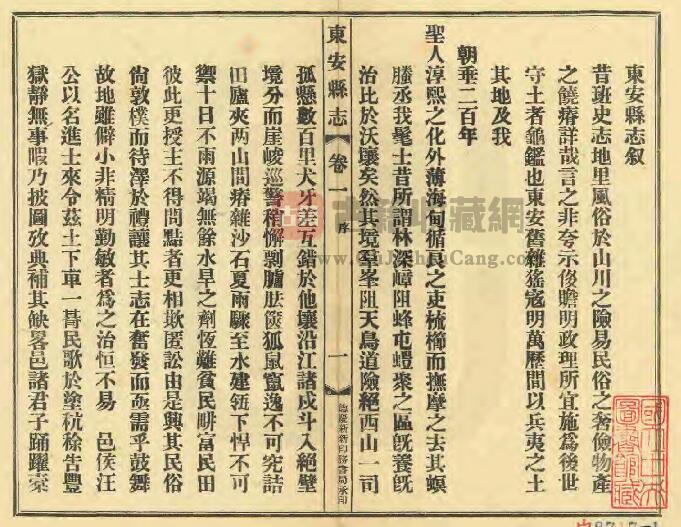 東安縣志叙
昔班史志地里風俗於山川之險易民俗之奢儉物產
之饒瘠詳哉言之非夸示後瞻明政理所宜施為後世
守土者龜鑑也東安舊雜猺寇明萬歷間以兵夷之土
其地及我
朝垂二百年
聖人淳熙之化外薄海甸循良之吏梳櫛而撫摩之去其螟
螣丞我髦士昔所謂林深嶂阻蜂屯螘聚之區旣養旣
治比於沃壤矣然其境羣峯阻天鳥道險絕西山一司
東安縣志
卷一
序
一
德慶新新印務書局承印
孤懸數百里犬牙差互錯於他壤沿江諸戍斗入絕壁
境分而崖峻巡警稍懈剽臚胠篋狐鼠竄逸不可究詰
田廬夾兩山間瘠雜沙石夏雨驟至水建瓴下悍不可
禦十日不雨源竭無餘水旱之劑恆難貧民畊富民田
彼此更授主不得問黠者更相欺匿訟由是興其民俗
尙敦樸而待澤於禮讓其士志在奮發而亟需乎鼓舞
故地雖僻小非精明勤敏者為之治恒不易 邑侯汪
公以名進士來令茲土下車一朞民歌於塗杭稌告豐
獄靜無事暇乃披圖攷典補其缺畧邑諸君子踴躍襄
古籍收藏網
GuJiShouCang.com